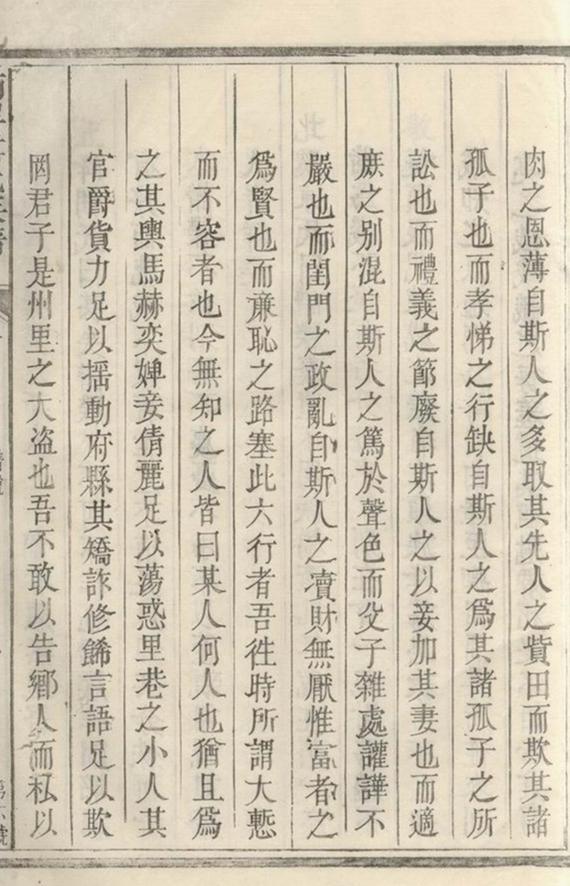 肉之恩薄自斯人之多取其先人之貲田而欺其諸
孤子也而孝悌之行缺自斯人之爲其諸孤子之所
訟也而禮義之節廢自斯人之以妾加其妻也而適
庶之别混自斯人之篤於聲色而父子雜處讙譁不
嚴也而閨門之政亂自斯人之賣財無厭惟富者之
爲賢也而亷恥之路塞此六行者吾徃時所謂大慝
而不容者也今無知之人皆曰某人何人也猶且爲
之其輿馬赫奕婢妾倩麗足以蕩惑里巷之小人其
官爵貨力足以揺動府縣其矯詐修餙言語足以欺
罔君子是州里之大盗也吾不敢以告鄉人而私以